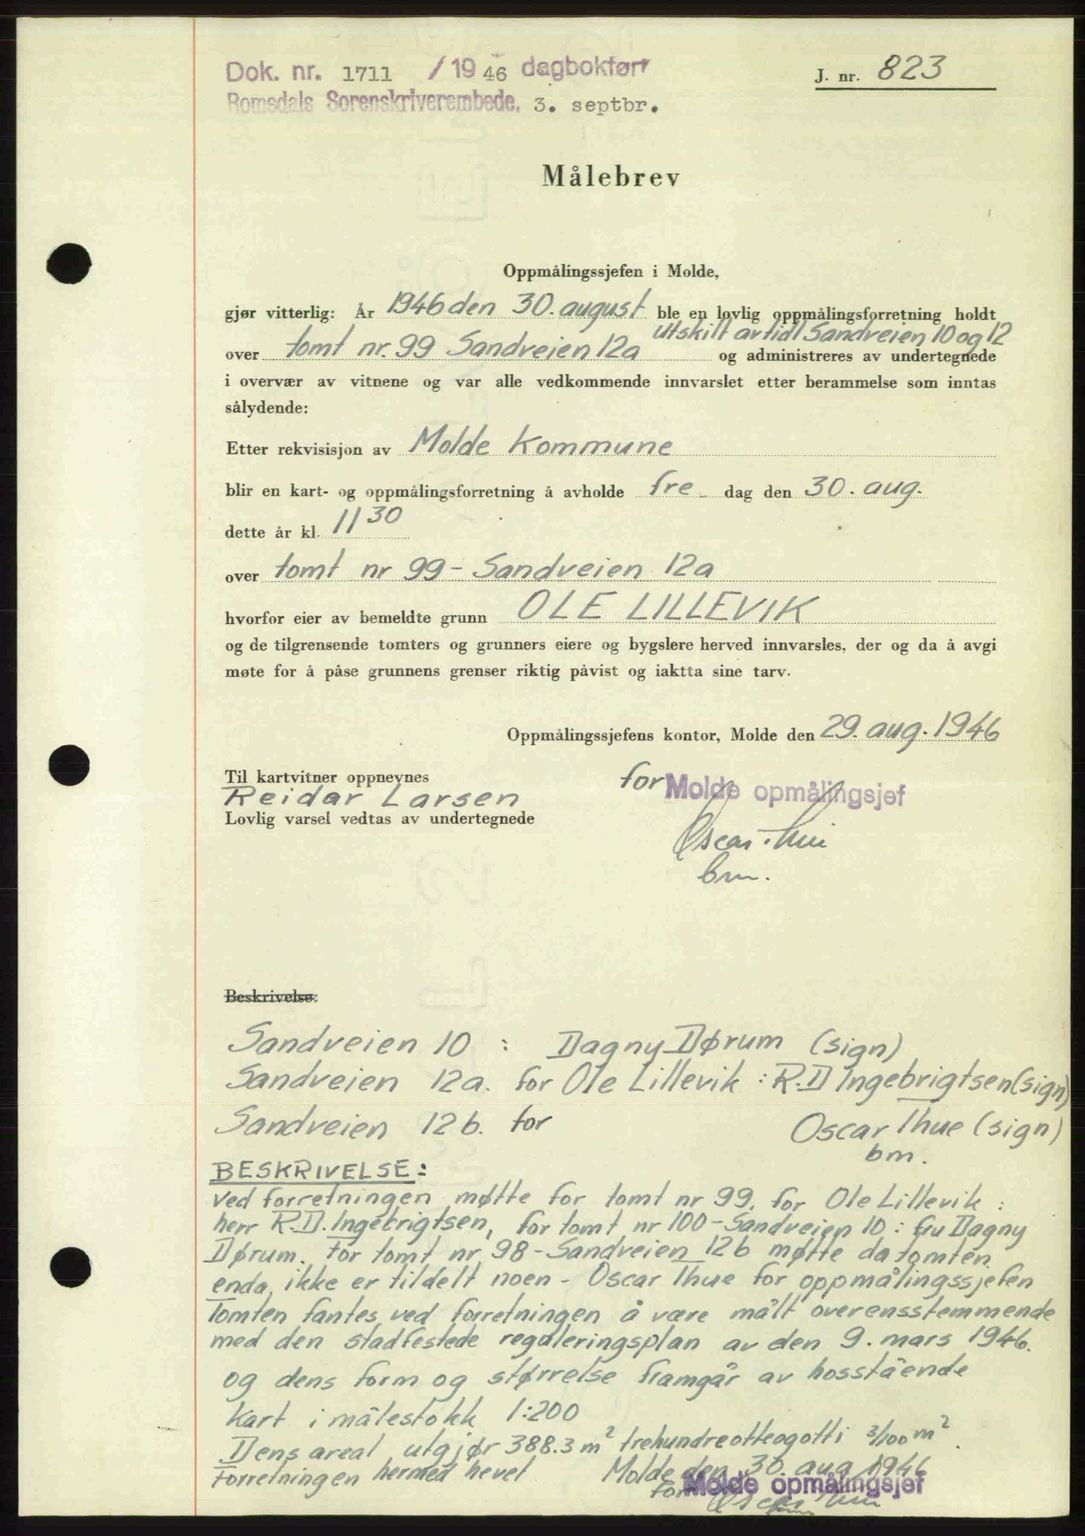 Dok. nr. 1711 / 19 46 dagbokført
J. nr. 823
Romsdals Sorenskriverembede, 3. septbr.
Målebrev
Oppmålingssjefen i Molde,
gjør vitterlig: År 1946 den 30. august ble en lovlig oppmålingsforretning holdt
utskilt av tidl Sandveien 10 og 12
over tomt nr. 99 Sandveien 12a og administreres av undertegnede
i overvær av vitnene og var alle vedkommende innvarslet etter berammelse som inntas
sålydende:
Etter rekvisisjon av Molde Kommune
blir en kart- og oppmålingsforretning å avholde fre dag den 30. aug.
dette år kl. 11 30
over tomt nr 99 - Sandveien 12a
hvorfor eier av bemeldte grunn OLE LILLEVIK
og de tilgrensende tomters og grunners eiere og bygslere herved innvarsles, der og da å avgi
møte for å påse grunnens grenser riktig påvist og iaktta sine tarv.
Oppmålingssjefens kontor, Molde den 29. aug. 1946
Til kartvitner oppnevnes
for Molde opmålingsjef
Reidar Larsen
Lovlig varsel vedtas av undertegnede
Oscar Thue
bm.
Beskrivelse:
Sandveien 10 : Dagny Dørum (sign)
Sandveien 12a. for Ole Lillevik : R.D Ingebrigtsen (sign)
Sandveien 12b. for Oscar Thue (sign)
bm.
BESKRIVELSE:
ved forretningen møtte for tomt nr 99. for Ole Lillevik :
herr R.D. Ingebrigtsen, for tomt nr 100 - Sandveien 10 : fru Dagny
Dørum. for tomt nr 98 - Sandveien 12b møtte da tomten
enda ikke er tildelt noen - Oscar Thue for oppmålingssjefen
Tomten fantes ved forretningen å være målt overensstemmende
med den stadfestede reguleringsplan av den 9. mars 1946.
og dens form og størrelse framgår av hosstående
kart i målestokk 1:200
Dens areal utgjør 388.3 m² trehundreotteogotti 3/100 m².
Forretningen hermed hevet Molde den 30. aug 1946
for Molde opmålingsjef
Oscar Thue
bm